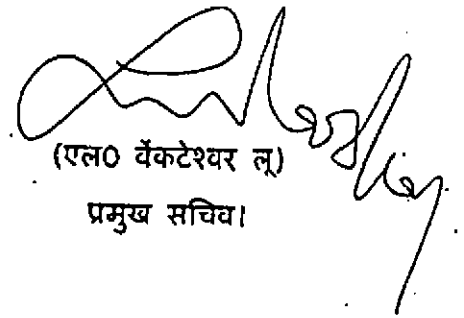 (एल0 वेंकटेश्वर लू)
प्रमुख सचिव।